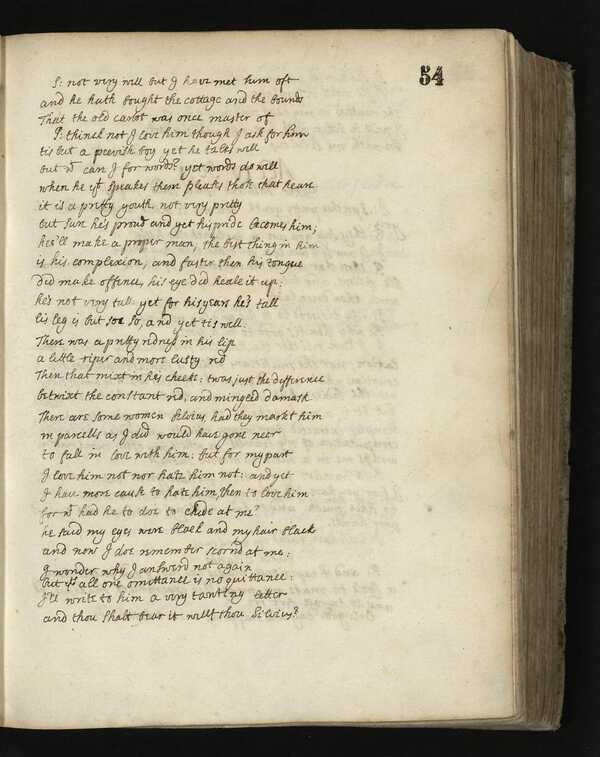 54
S: not very well but I have met him oft
and he hath bought the cottage and the bounds
That the old carlot was once master of
P: thinck not I love him though I ask for him
tis but a peevish boy yet he talks well
but wt care I for words? yet words do well
when he yt speakes them pleases those that heare
it is a pretty youth not very pretty
but sure he's proud and yet his pride becomes him;
hee'll make a proper man; the best thing in him
is his complexion, and faster then his tongue
did make offence, his eye did heale it up:
he's not very tall yet for his years he's tall
his leg is but soe so, and yet tis well.
There was a pretty rednes in his lip
a little riper and more lusty red
Then that mixt in his cheeke: twas just the difference
betwixt the constant red, and mingled damask
There are some women Silvius had they markt him
in parcells as I did would have gone neer
to fall in love with him: but for my part
I love him not nor hate him not: and yet
I have more cause to hate him, then to love him
for wt had he to doe to chide at me?
he said my eyes were black and my hair black
and now I doe remember scornd at me:
I wonder why I answerd not again
but yts all one omittance is no quittance:
I'll write to him a very tanting letter
and thou shalt bear it willt thou Silvius?